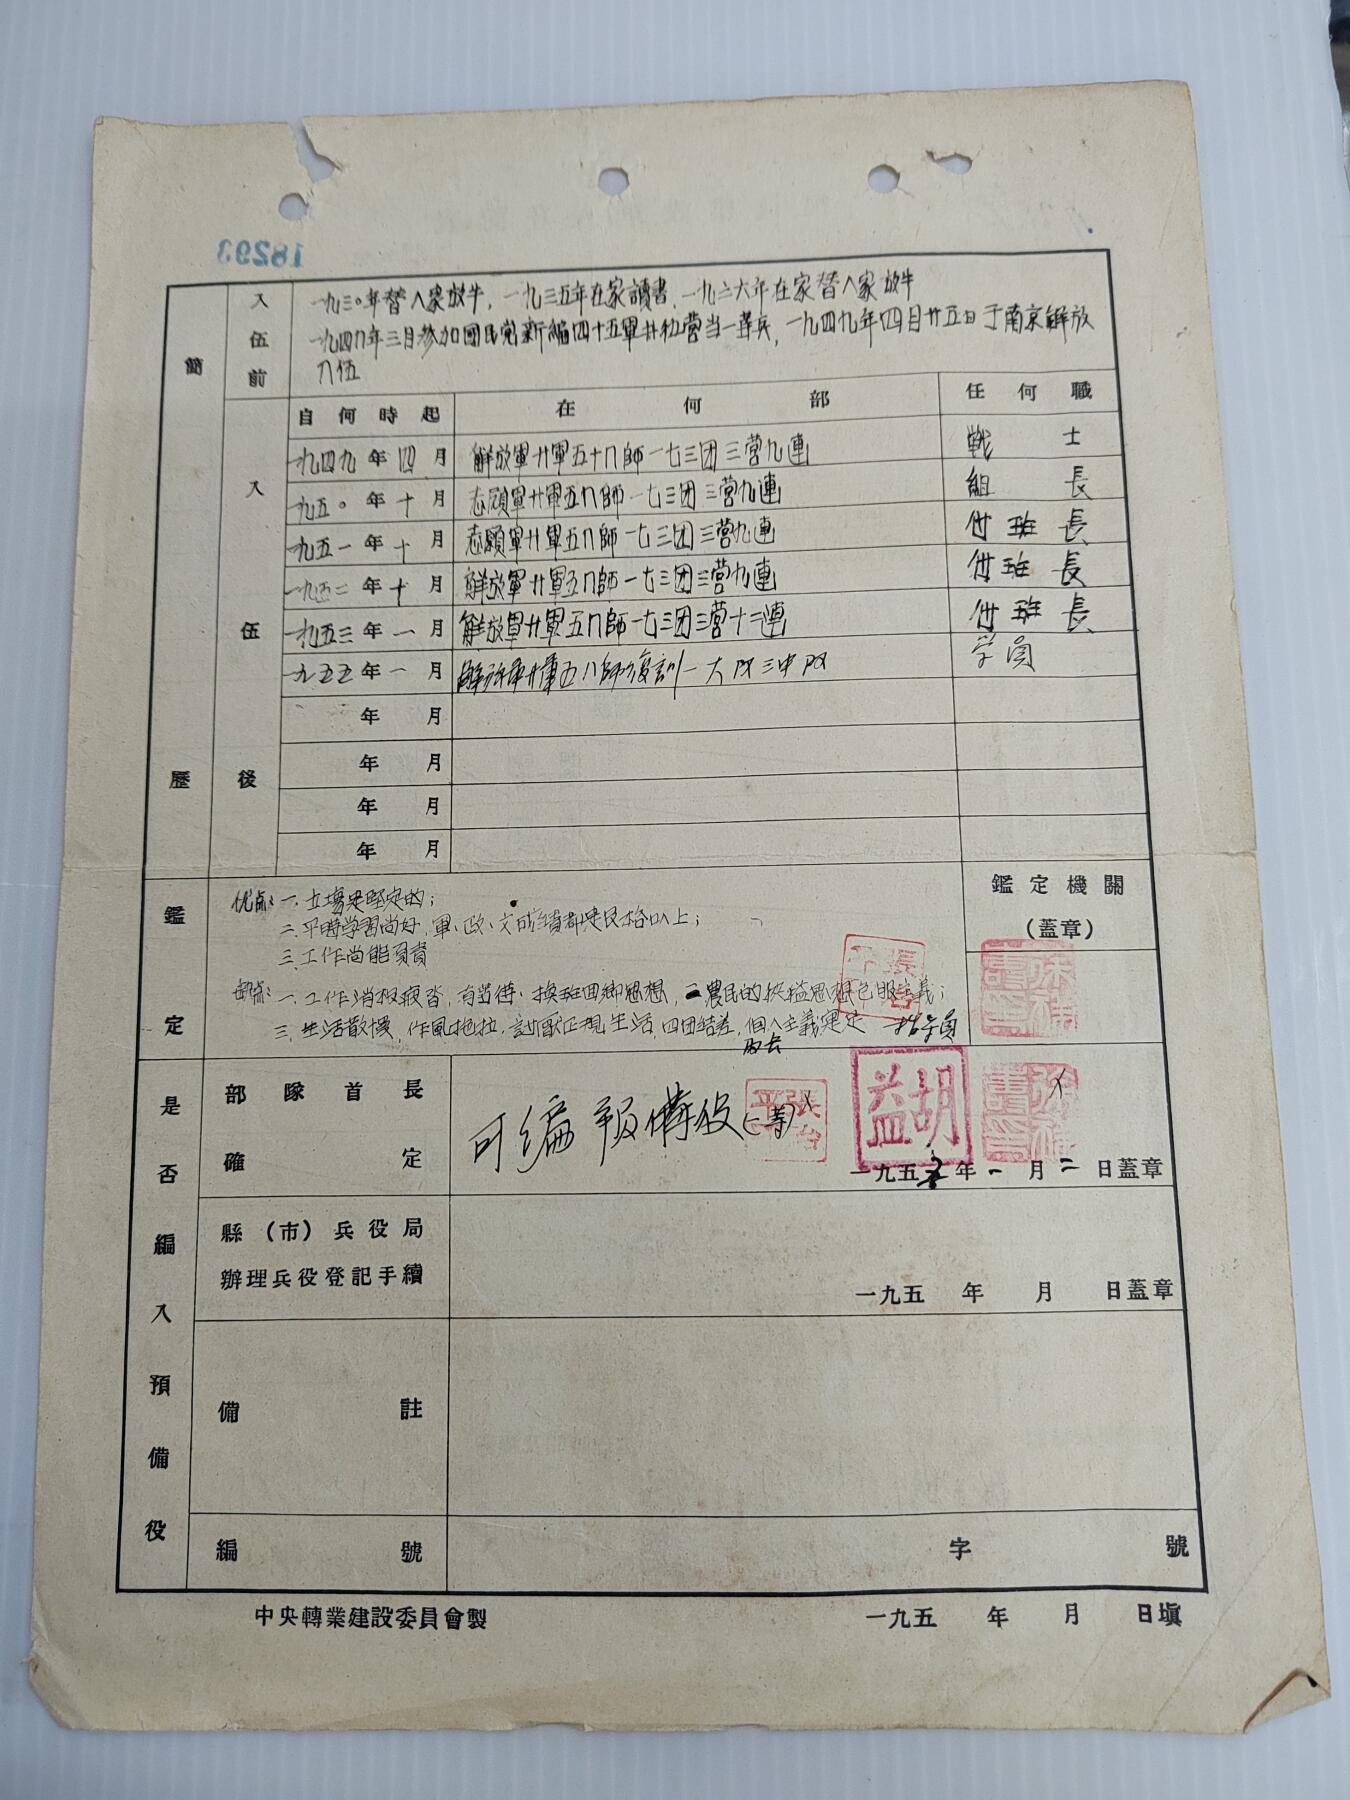 18293
簡歷
入伍前
一九三〇年替人家放牛，一九三五年在家讀書，一九三六年在家替人家放牛
一九四八年三月參加國民党新編四十五軍廿
營当一等兵，一九四九年四月廿五日于南京解放
入伍
入伍後
自何時起 在何部 任何職
一九四九年四月 解放軍廿軍五十八師一七三团三营九連 戦士
一九五〇年十月 志願軍廿軍五八師一七三团三营九連 組長
一九五一年十月 志願軍廿軍五八師一七三团三营九連 付班長
一九五二年十月 解放軍廿軍五八師一七三团三营九連 付班長
一九五三年一月 解放軍廿軍五八師一七三团三营十二連 付班長
一九五五年一月 解放軍廿軍五八師復訓一大队三中队 学員
年 月
年 月
年 月
年 月
鑑定
鑑定機關
(蓋章)
优点：一、立場是堅定的；
二、平時学習尚好，軍、政、文成績都是及格以上；
三、工作尚能負責
缺点：一、工作消极疲沓，有当
換班回鄉思想，二、農民的
思想
主義；
三、生活散慢，作風拖拉，討厭正規生活，四、团結差，個人主義
是否編入預備役
部隊首長
確定
可編
預備役(二等)
張
平
胡益
一九五五年一月二日蓋章
縣(市)兵役局
辦理兵役登記手續
一九五 年 月 日蓋章
備註
編號 字 號
中央轉業建設委員會製
一九五 年 月 日填